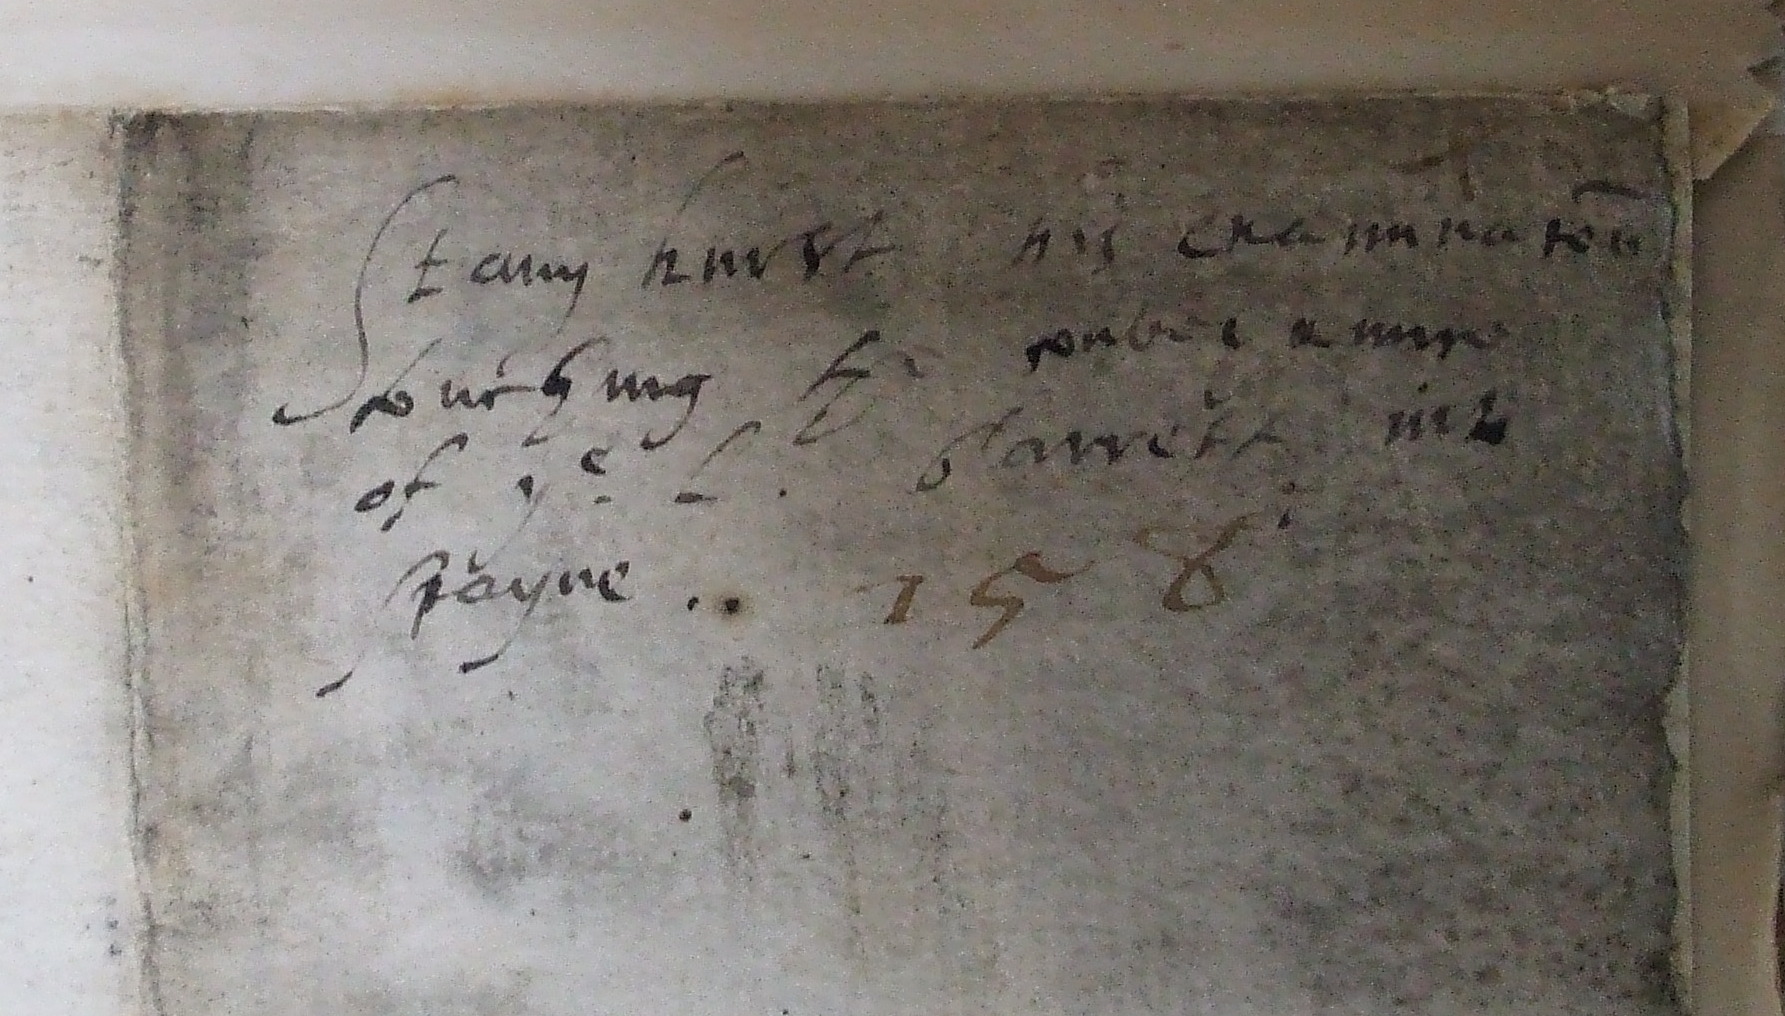 Stany hurst his examinaton
touching
of ye L. Garrett in
spayne .. 158